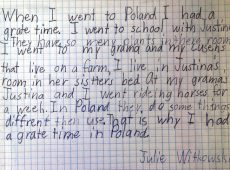 When I went to Poland I had a
grate time. I went to school with Justina
They have so meny plants in there room
I went to my grama and my cusens
that live on a farm, I live in Justinas
room in her sistters bed At my grama
Justina and I went riding horses for
a week. In Poland they do some things
diffrent then use. That is why I had
a grate time in Poland.
Julie Witkowski